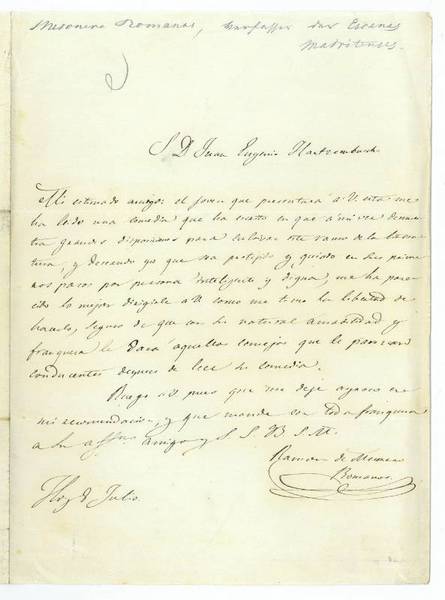 Mesonero Romanos, Verfasser der Escenas
Matritenses.
S. D. Juan Eugenio Hartzenbusch
Mi estimado amigo: el joven que presentará a V. esta me
ha leido una comedia que ha escrito en que a mi ver demues
tra grandes disposiciones para cultivar este ramo de la litera
tura, y deseando yo que sea protejido y guiado en sus prime
ros pasos por persona inteligente y digna, me ha pare
cido lo mejor dirigirle a V. como me tomo la libertad de
hacerlo, seguro de que con su natural amabilidad y
franqueza le dara aquellos consejos que le parezcan
conducentes despues de leer su comedia.
Ruego a V. pues que me deje ayroso en
mi recomendacion, y que mande con toda franqueza
a su affmo amigo y S. S. Q. B. S. M.
Ramon de Mesonero
Romanos
Hoy 8 Julio.